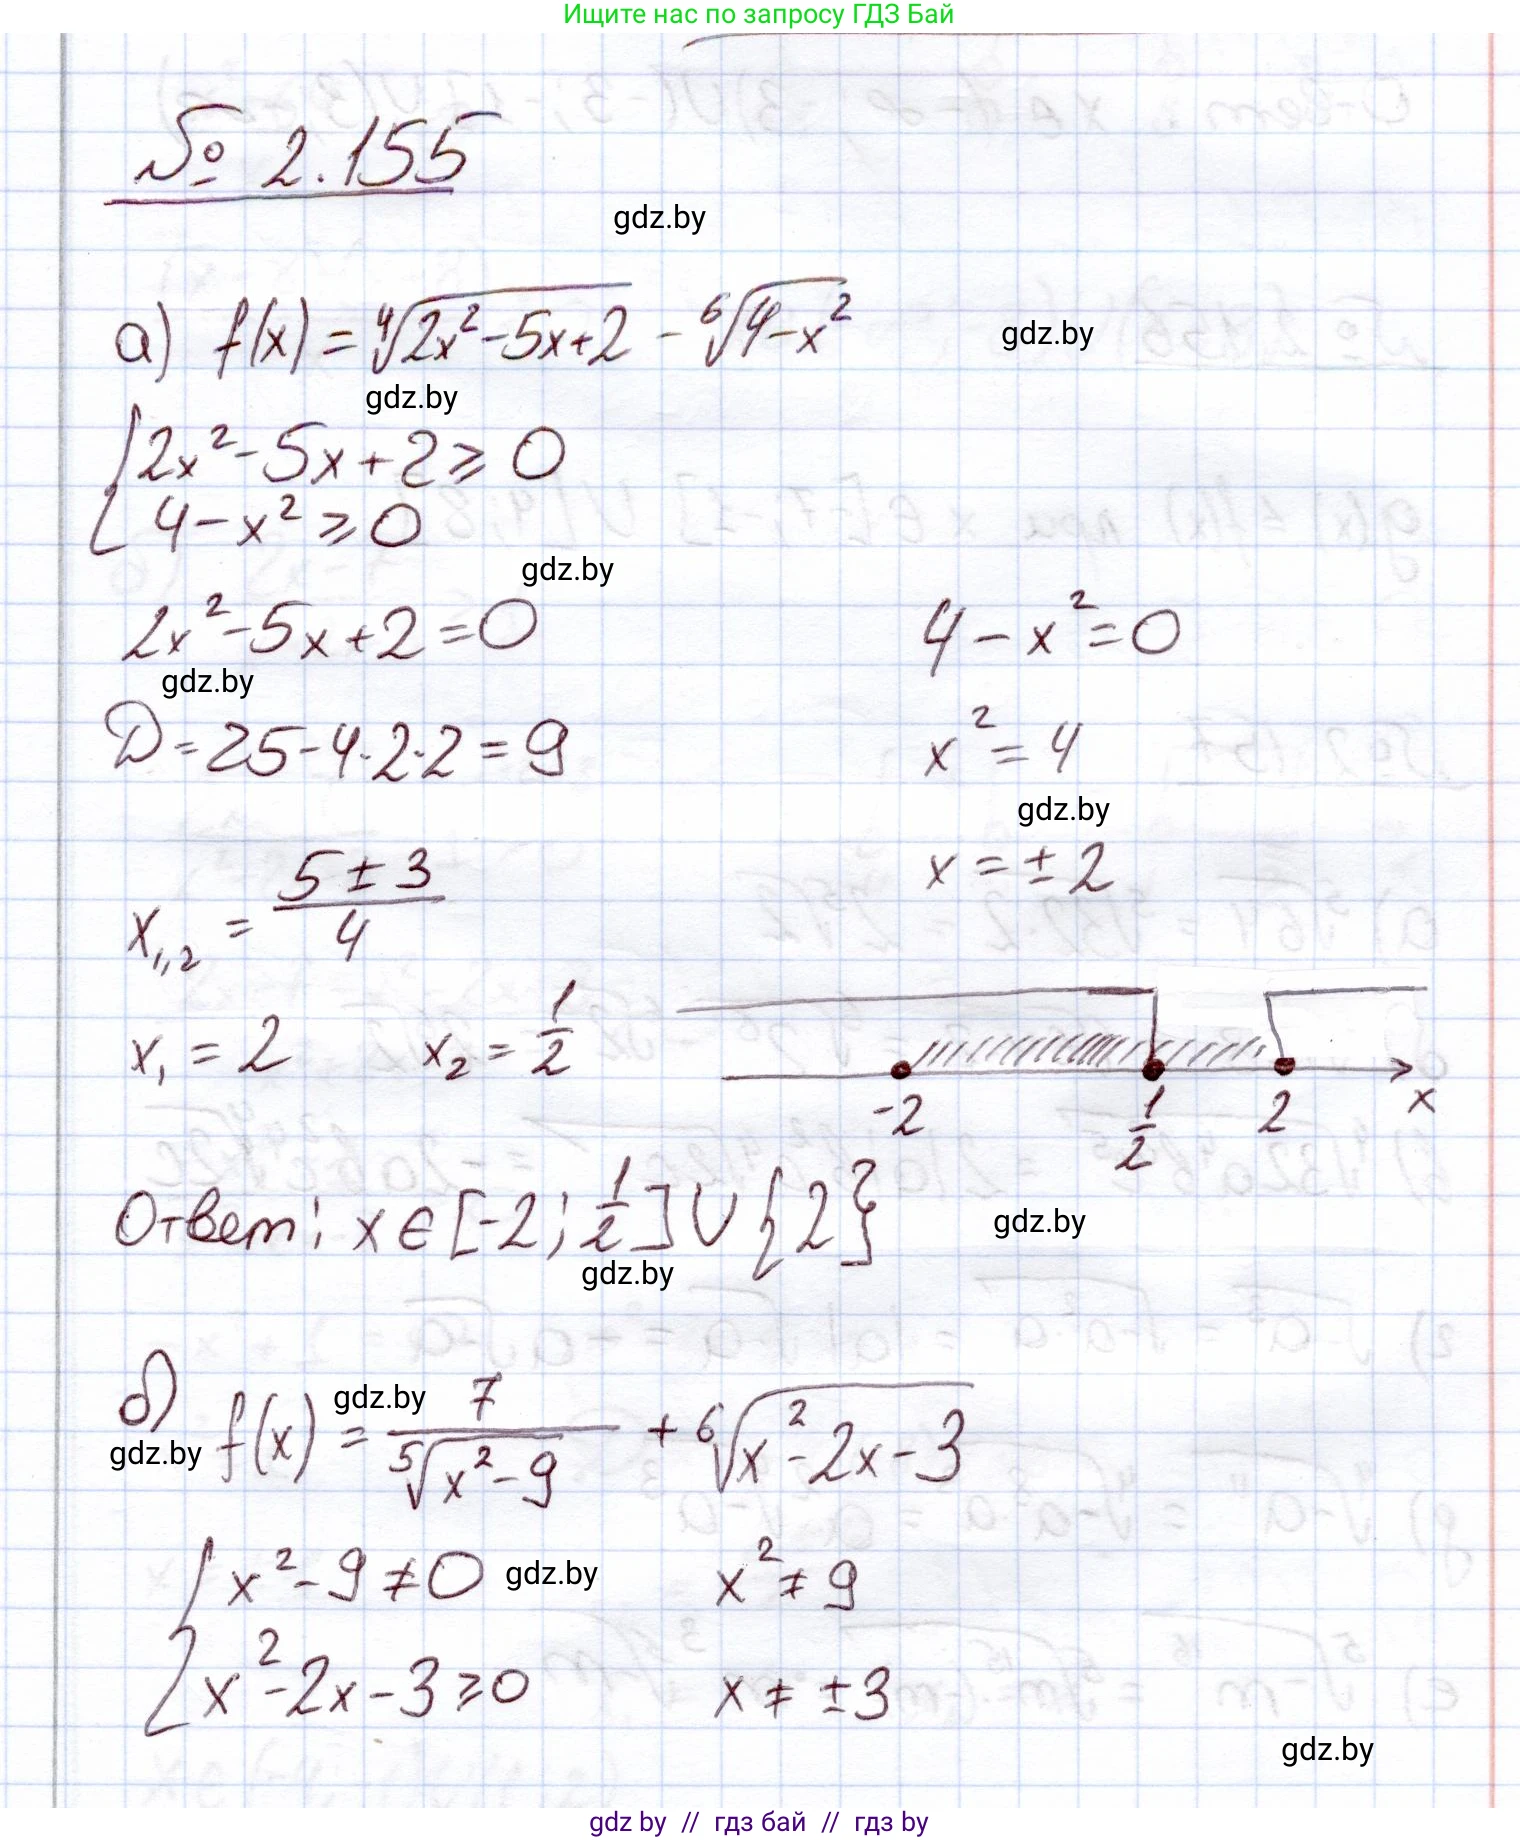 Ищите нас по запросу ГДЗ Бай
№ 2.155
gdz.by
а) f(x) = ⁴√(2x² - 5x + 2) - ⁶√(4 - x²)
gdz.by
gdz.by
{ 2x² - 5x + 2 ≥ 0
4 - x² ≥ 0
gdz.by
2x² - 5x + 2 = 0
4 - x² = 0
gdz.by
D = 25 - 4·2·2 = 9
x² = 4
gdz.by
x₁,₂ = (5 ± 3)/4
x = ± 2
x₁ = 2 x₂ = 1/2
-2 1/2 2 x
Ответ: x ∈ [-2; 1/2] ∪ {2}
gdz.by
gdz.by
б) f(x) = 7/⁵√(x² - 9) + ⁶√(x² - 2x - 3)
gdz.by
gdz.by
{ x² - 9 ≠ 0
gdz.by
x² ≠ 9
x² - 2x - 3 ≥ 0
x ≠ ± 3
gdz.by
gdz by // гдз бай // гдз by